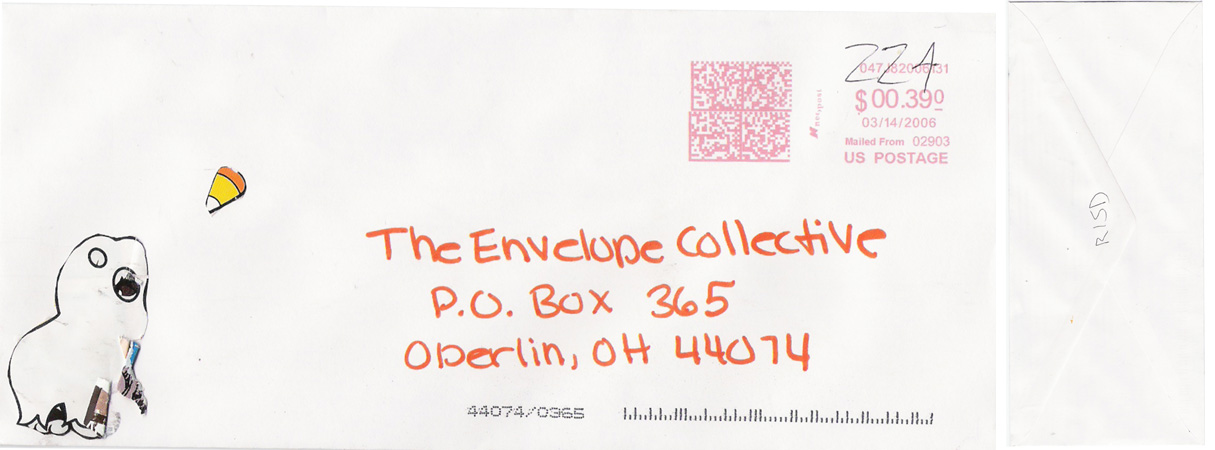 ZZA
047J82006131
$ 00.390
03/14/2006
Mailed From 02903
US POSTAGE
neopost
The Envelope Collective
P.O. Box 365
Oberlin, OH 44074
44074/0365
RISD